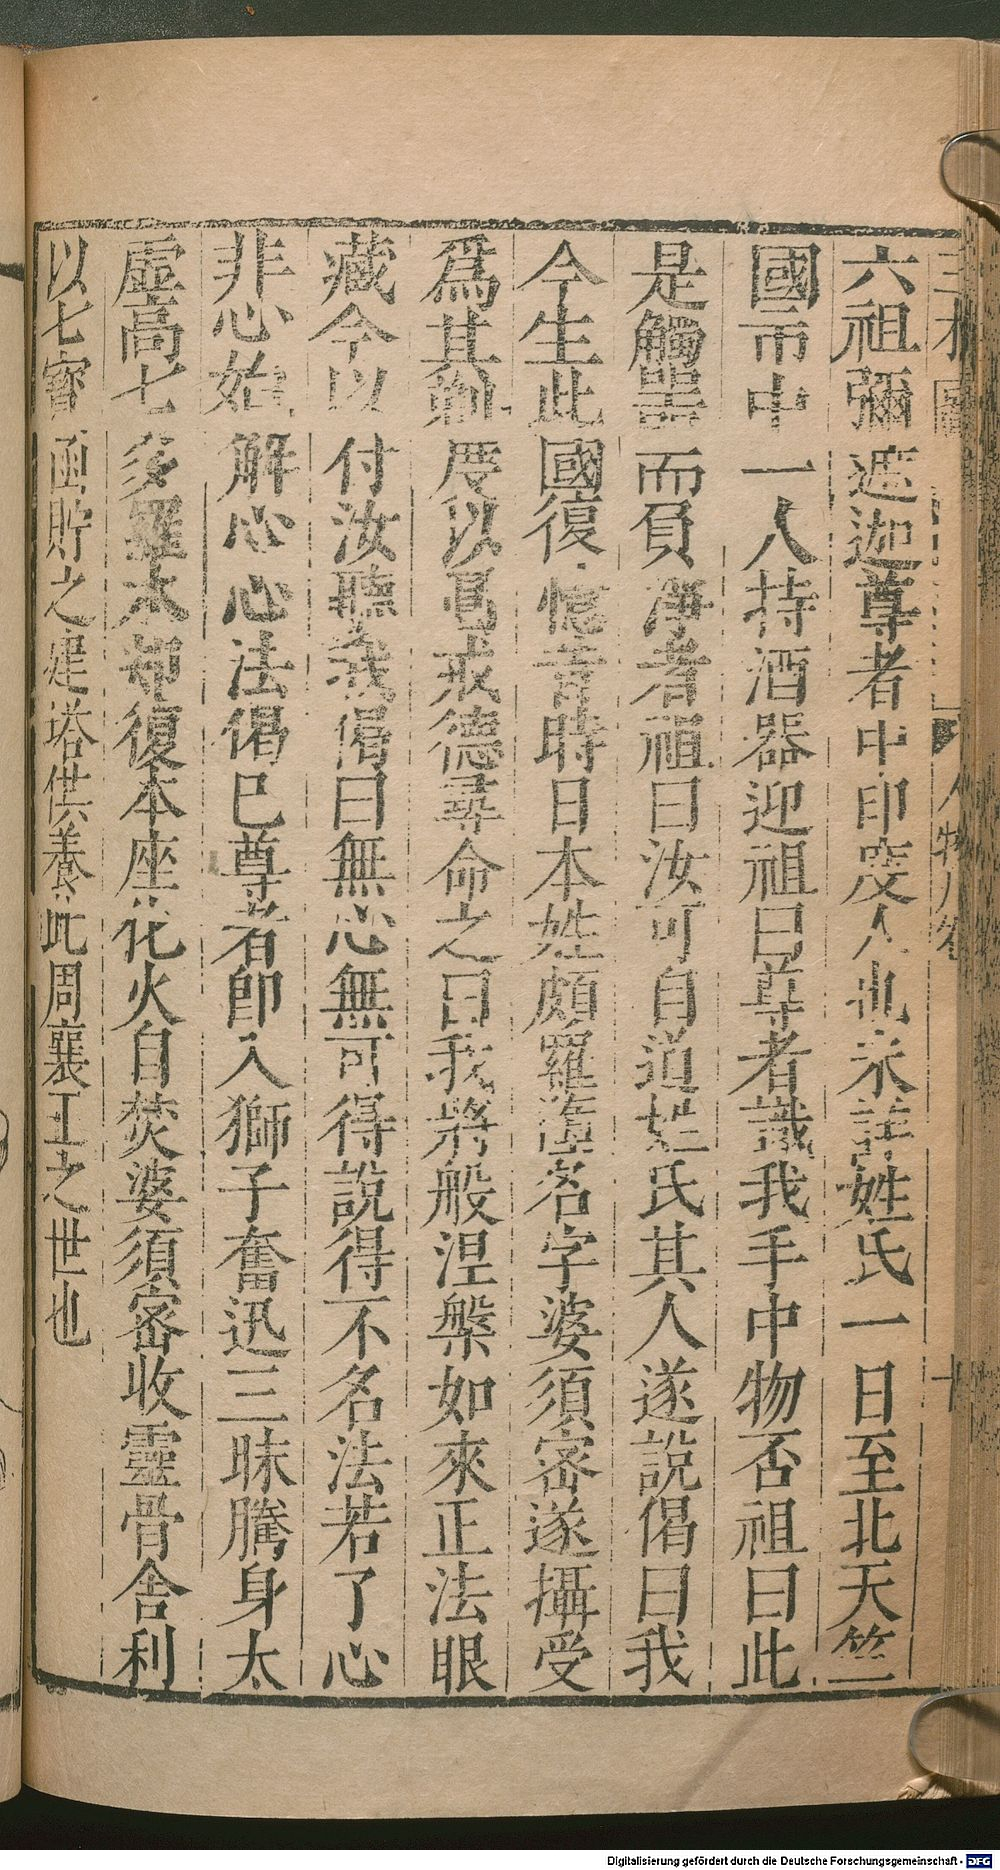 三才圖會
人物九卷
十
六祖彌遮迦尊者中印度人也未詳姓氏一日至北天竺
國市中一人持酒器迎祖曰尊者識我手中物否祖曰此
是觸噐而負淨者祖曰汝可自道姓氏其人遂說偈曰我
今生此國復憶昔時日本姓頗羅墮名字婆須密遂攝受
爲其剃度以爲戒德尋命之曰我將般涅槃如來正法眼
藏今以付汝聽我偈曰無心無可得說得不名法若了心
非心始解心心法偈巳尊者即入獅子奮迅三昧騰身太
虛高七多羅木却復本座化火自焚婆須密收靈骨舍利
以七寳函貯之建塔供養此周襄王之世也
Digitalisierung gefördert durch die Deutsche Forschungsgemeinschaft - DFG